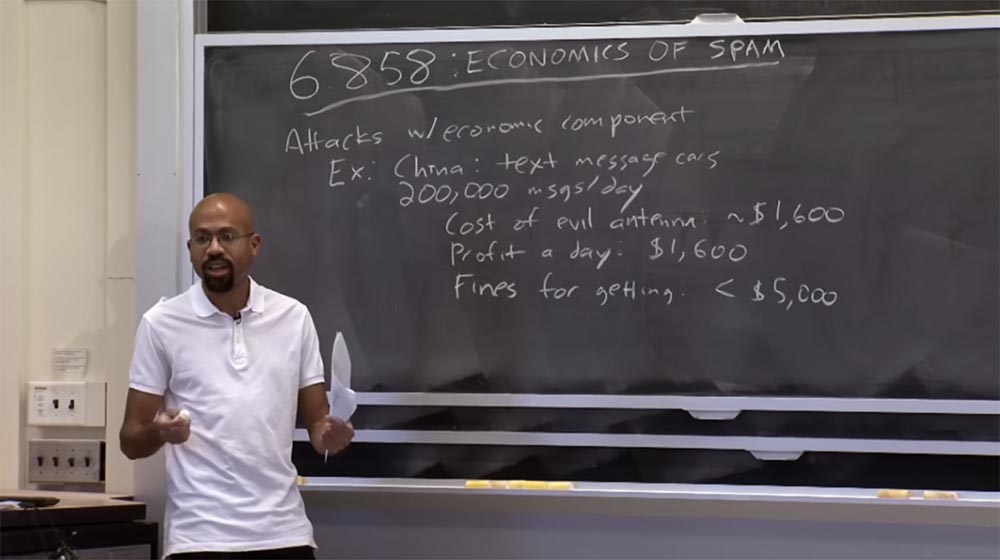 6.858: ECONOMICS OF SPAM
Attacks w/ economic component
Ex: China: text message cars
200,000 msgs/day
Cost of evil antenna: ~$1,600
Profit a day: $1,600
Fines for getting: < $5,000